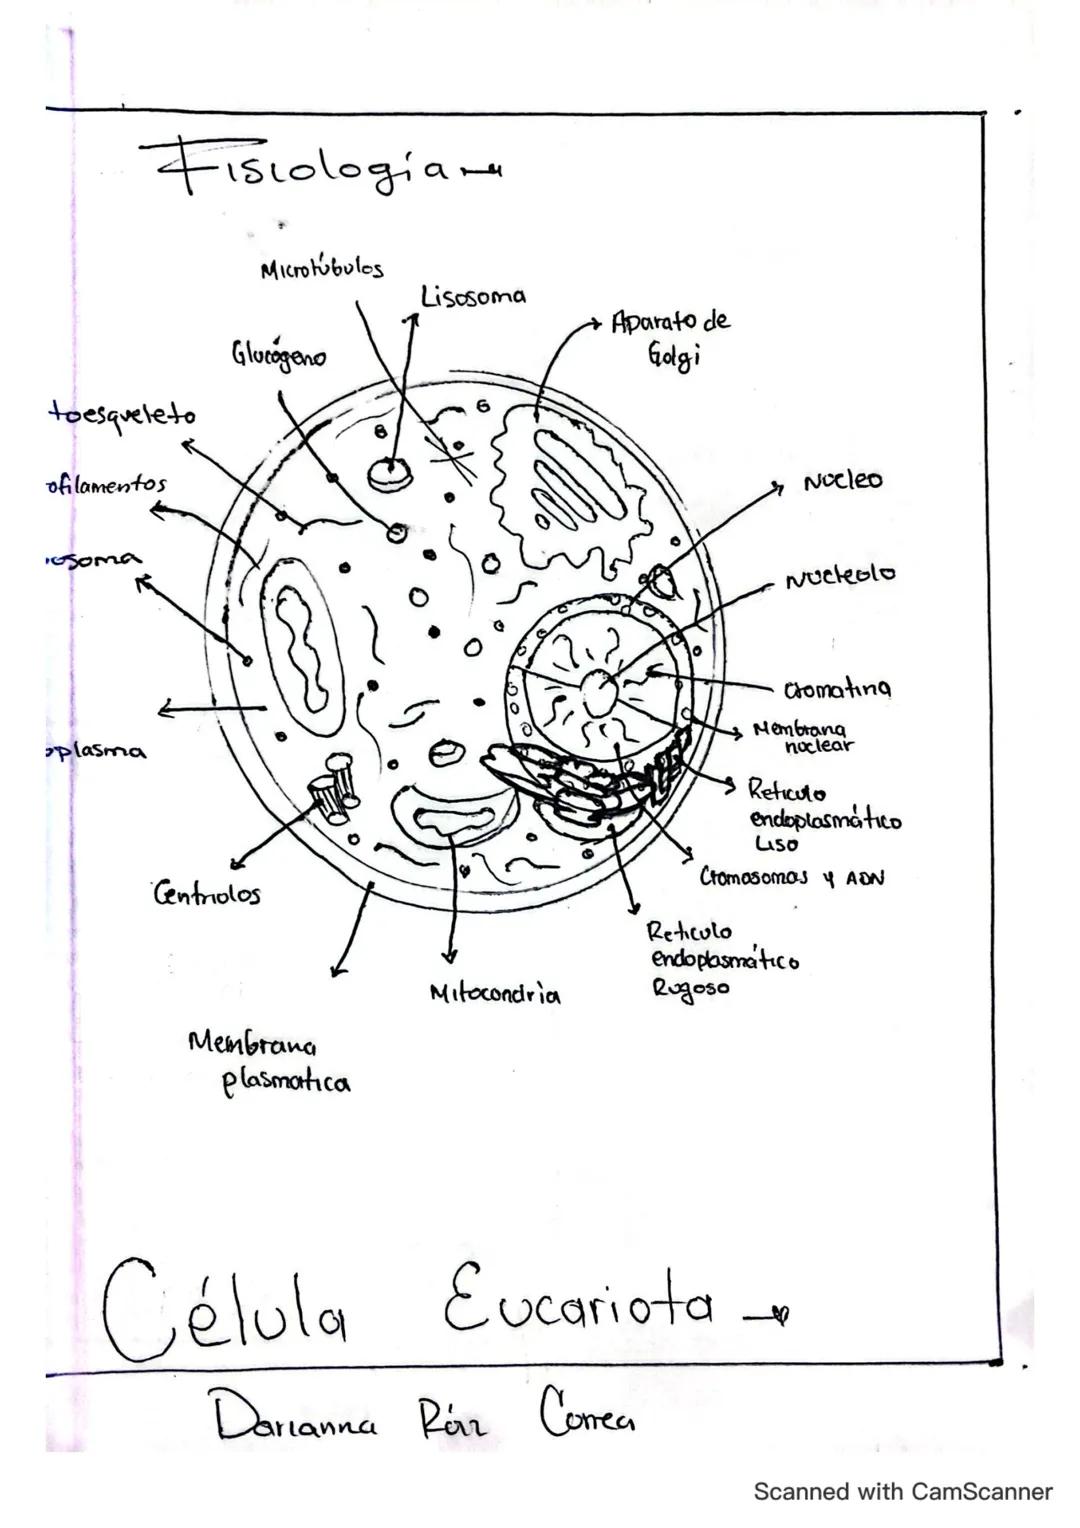 Fisiología
Microtúbulos
Lisosoma
Glucógeno
Aparato de
Golgi
toesqueleto
ofilamentos
osoma
oplasma
Nucleo
Nucleolo
Cromatina
Membrana
nuclear
Reticulo
endoplasmático
Liso
Cromosomas y ADN
Reticulo
endoplasmático
Rugoso
Centriolos
Mitocondria
Membrana
plasmatica
Célula Eucariota
Darianna Correa
Scanned with CamScanner